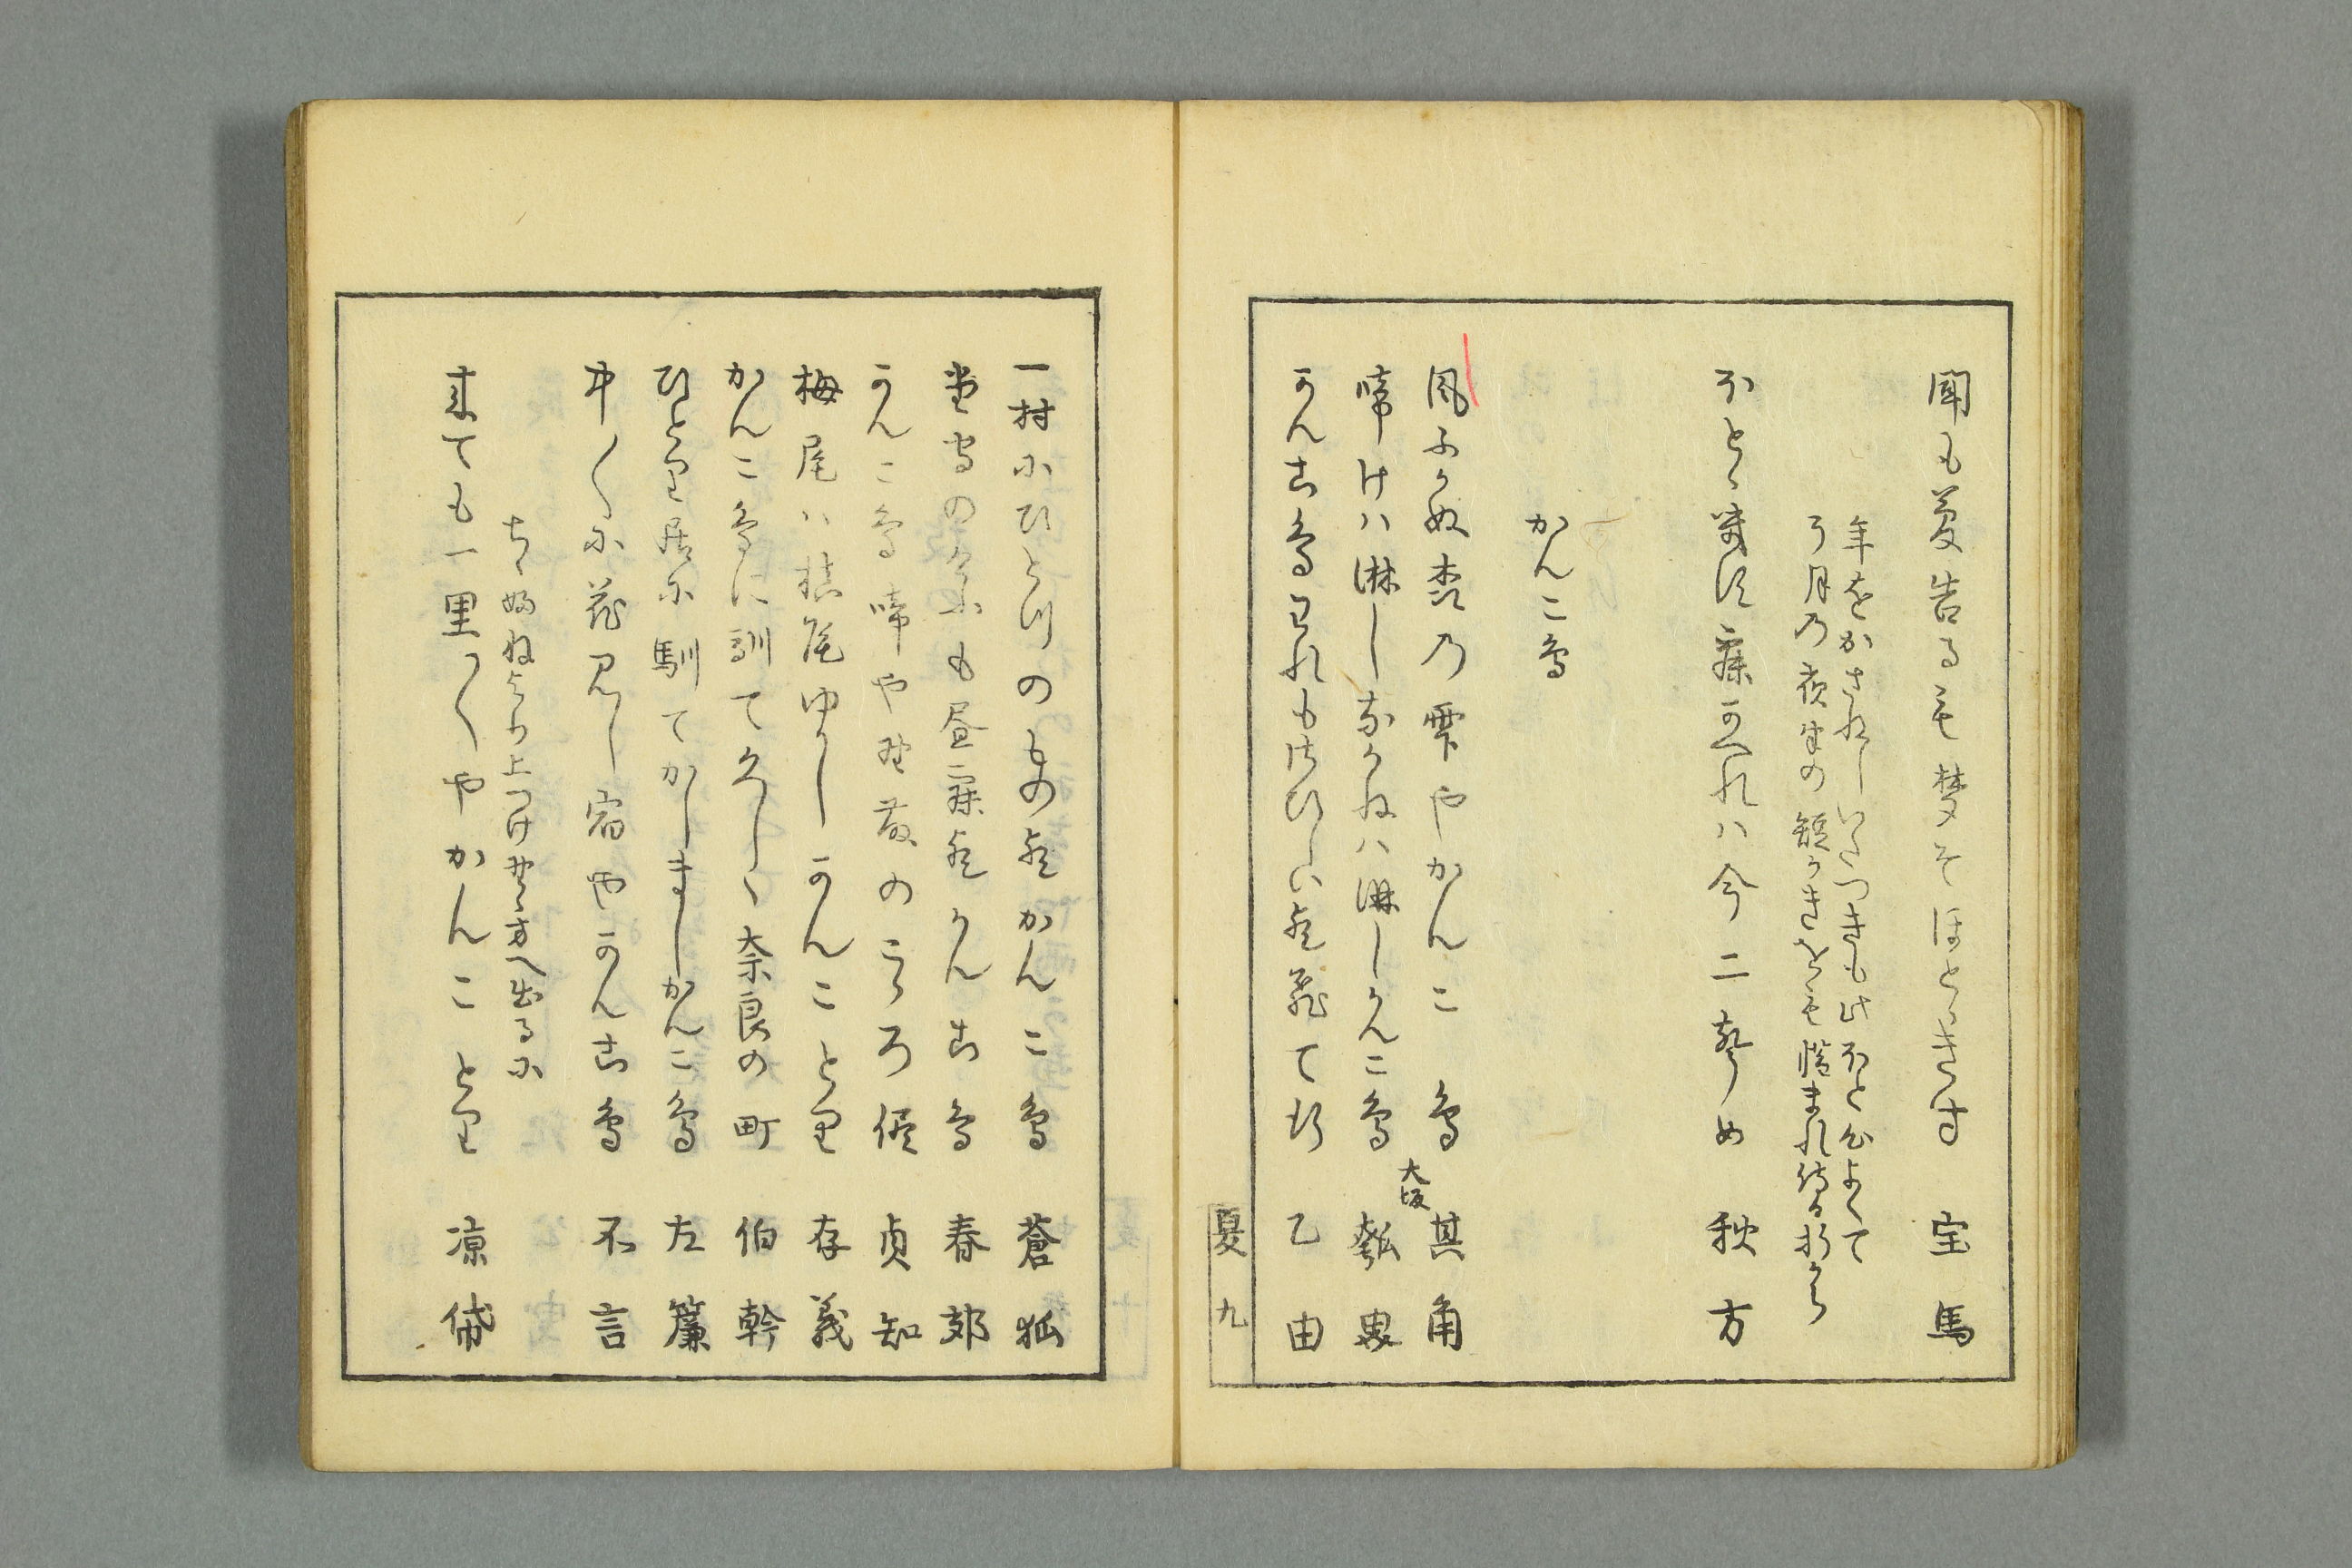 聞も夢告るも梦そほとゝきす 宝馬
年をかさねしいたつきも此ほと心よくて
う月乃夜半の短きをも惜まれ侍る折から
ほとゝきす寐かへれは今二声め 秋方
かんこ鳥
風ふかぬ森乃雫やかんこ鳥 其角
啼けハ淋しなかねハ淋しかんこ鳥 大坂 瓠叟
かんこ鳥われもさひしいか飛て行 乙由
夏 九
一村にひとつのものかかんこ鳥 蒼狐
堂守の系も昼寐かかんこ鳥 春郊
かんこ鳥啼や野守のこゝろ侭 貞知
梅尾ハ槙尾ゆかしかんことり 存義
かんこ鳥に馴て久しゝ奈良の町 伯幹
ひとり居に馴てかしましかんこ鳥 左簾
中〱に花見し宿やかんこ鳥 不言
ちゝふねより上つけ野ゝ方へ出るに
来ても一里つゝやかんことり 凉帒